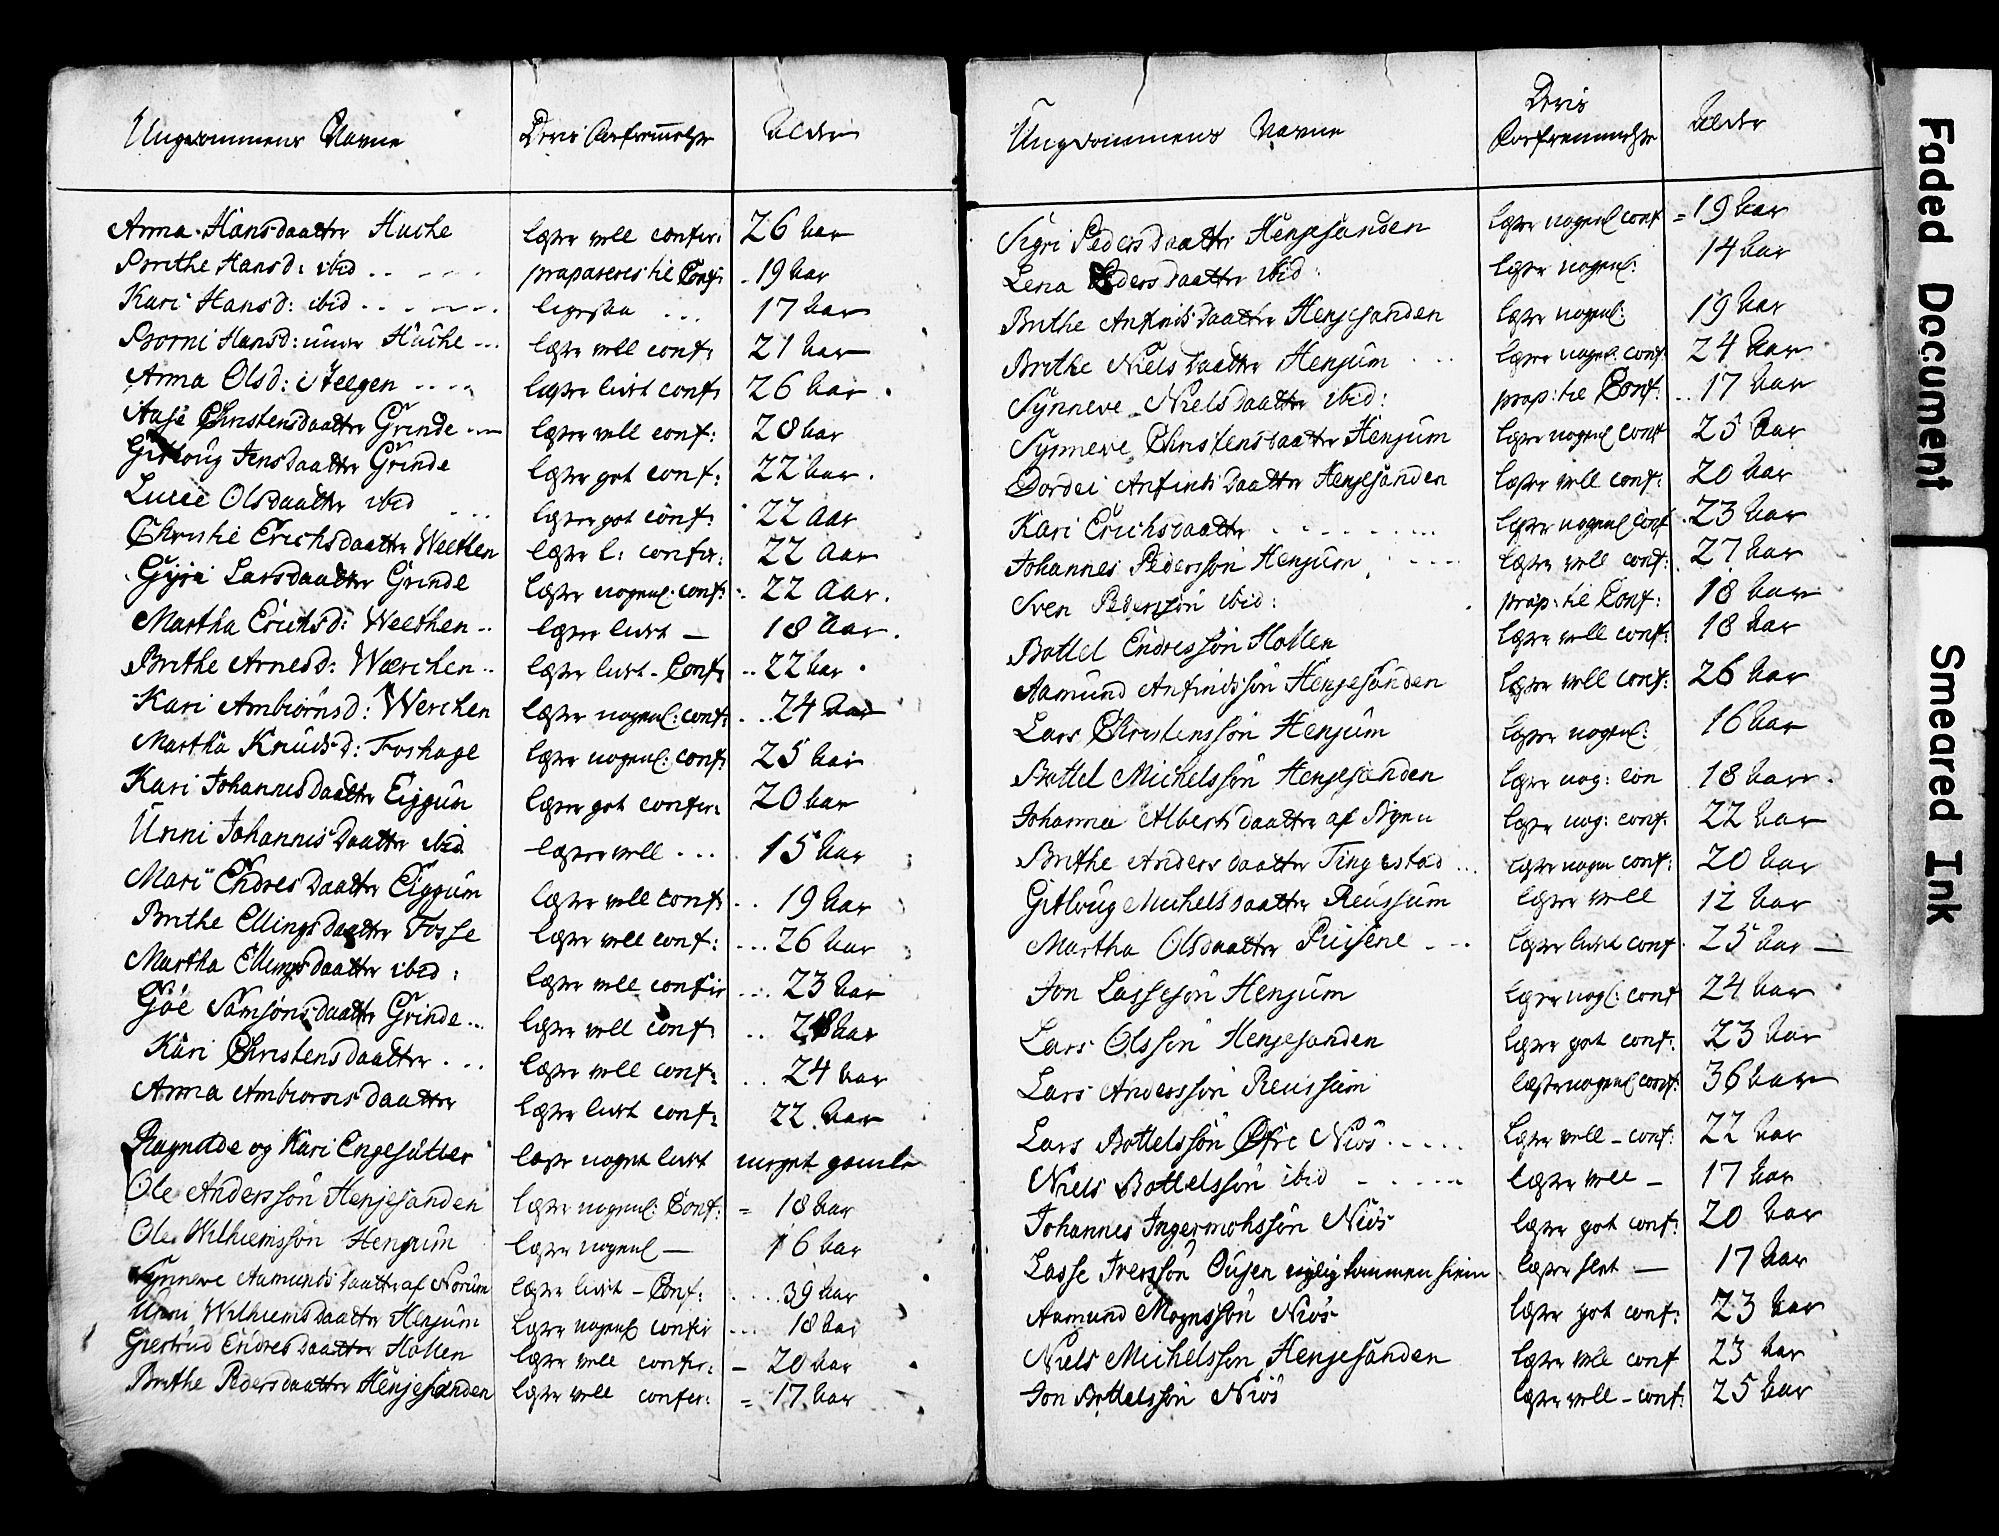 Ungdommens Navne Deris Aldern
Anna Hansdaatter Husche læser vell confir: 26 Aar
Brithe Hansd: ibid præpareres til Conf: 19 Aar
Kari Hansd: ibid ligesaa 17 Aar
Hansd: Husche læser vell conf: 21 Aar
Anna Olsd: læser lidet conf: 26 Aar
Aase Christensdaatter Grinde læser vell conf: 28 Aar
Gitloug Jensdaatter Grinde læser got conf: 22 Aar
Lucie Olsdaatter ibid læser got conf: 22 Aar
Christie Erichsdaatter Weethen læser l: confir: 22 Aar
Gyri Larsdaatter Grinde læser nogenl: conf: 22 Aar
Martha Erichsd: Weethen læser lidet 18 Aar
Brithe Arnesd: Wærchen læser lidet Conf: 22 Aar
Kari Ambiörnsd: Werchen læser nogenl: conf: 24 Aar
Martha Knudsd: Foshage læser nogenl: conf: 25 Aar
Kari Johannisdaatter Eiggum læser got confir: 20 Aar
Unni Johannisdaatter ibid læser vell 15 Aar
Mari Endresdaatter Eiggum læser vell conf: 19 Aar
Brithe Ellingsdaatter Fosse læser vell conf: 26 Aar
Martha Ellingsdaatter ibid: læser vell confir 23 Aar
Göe Samsonsdaatter Grinde læser vell conf: Aar
Kari Christensdaatter læser vell conf: 24 Aar
Anna Ambiornsdaatter læser lidet conf: 22 Aar
Ragnilde og Kari Engesætter læser noget lidet meget gamle
Ole Andersson Henjesanden læser nogenl: Conf: = 18 Aar
Ole Wilhiemsson Henjum læser nogenl 16 Aar
Synneve Aamundsdaatter af Norum læser lidet Conf: 39 Aar
Unni Wilhiemsdaatter Henjum læser nogenl confir 18 Aar
Giertrud Endresdaatter Hollen læser vell confir: 20 Aar
Brithe Pedersdaatter Henjesanden læser vell confer: = 17 Aar
Ungdommens Navne Deris Alder
Sigri Pedersdaatter Henjesanden læser nogenl conf = 19 Aar
Lena Pedersdaatter ibid: læser nogenl: 14 Aar
Brithe Anfindsdaatter Henjesanden læser nogenl: 19 Aar
Brithe Nielsdaatter Henjum læser nogenl: conf: 24 Aar
Synneve Nielsdaatter ibid: præp: til Conf: 17 Aar
Synneve Christensdaatter Henjum læser nogenl conf 25 Aar
Dordei Anfindsdaatter Henjesanden læser vell conf: 20 Aar
Kari Erichsdaatter læser nogenl conf 23 Aar
Johannes Pedersson Henjum læser vell conf: 27 Aar
Sven Pedersson ibid: præp: til Conf: 18 Aar
Bottel Endresson Hollen læser vell conf: 18 Aar
Aamund Anfindsson Henjesanden læser vell conf: 26 Aar
Lars Christensson Henjum læser nogenl: 16 Aar
Bottel Michelsson Henjesanden læser nog: con 18 Aar
Johanna Albertsdaatter af Byen læser nog: conf: 22 Aar
Brithe Andersdaatter Tingestad læser nogen conf: 20 Aar
Gitloug Michelsdaatter Reussum læser vell 12 Aar
Martha Olsdaatter læser lidet conf 25 Aar
Jon Lasseson Henjum læser nogl: conf 24 Aar
Lars Olsson Henjesanden læser got conf: 23 Aar
Lars Andersson Reussum læser nogenl conf: 36 Aar
Lars Bottelsson Öfre Niös læser vell conf: 22 Aar
Niels Bottelsson ibid læser vell 17 Aar
Johannes Ingermohsson Niös læser got conf: 20 Aar
Lasse Iversson Ousen nylig kommen hiem læser slet 17 Aar
Aamund Mognsson Niös læser got conf: 23 Aar
Niels Michelsson Henjesanden læser vell conf 23 Aar
Jon Bottelsson Niös læser vell conf: 25 Aar
Faded Document
Smeared Ink